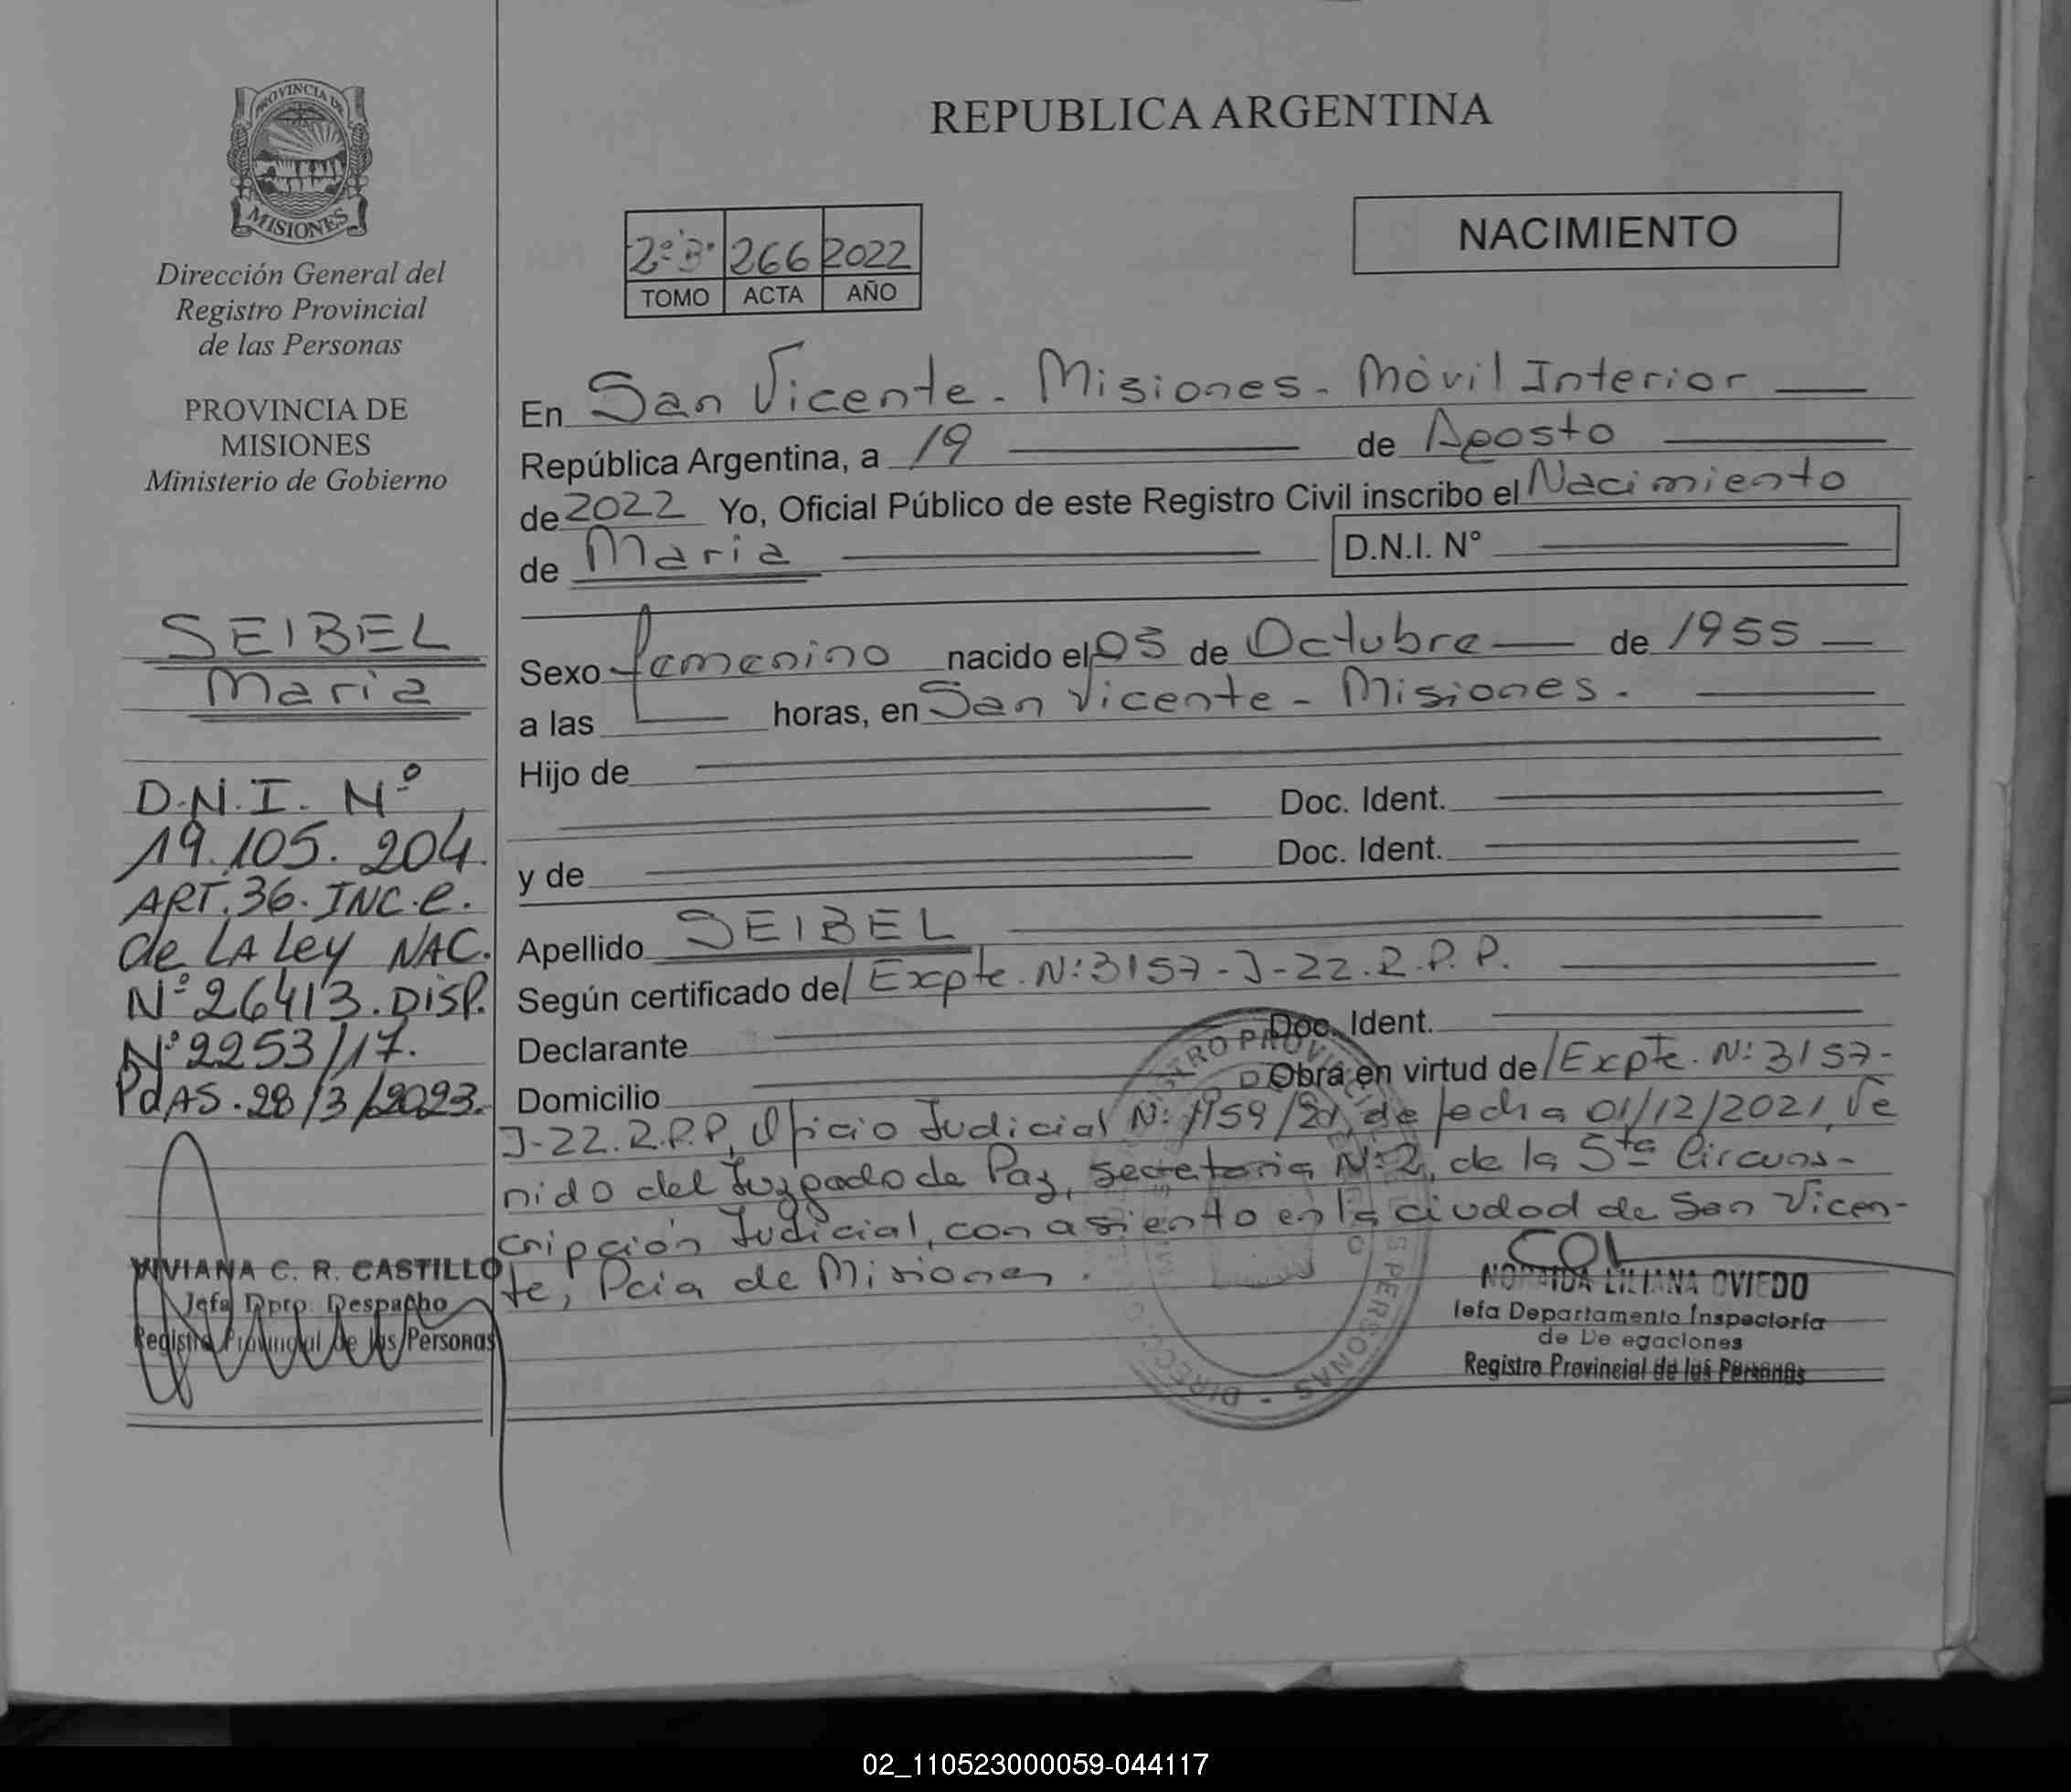 PROVINCIA DE
MISIONES
Dirección General del
Registro Provincial
de las Personas
PROVINCIA DE
MISIONES
Ministerio de Gobierno
SEIBEL
Maria
D.N.I. Nº
19.105.204.
ART.36.INC.e.
de LA Ley NAC.
Nº26413.DISP.
Nº2253/17.
PdAS.28/3/2023.
VIVIANA C. R. CASTILLO
Jefa Dpto. Despacho
Registro Provincial de las Personas
REPUBLICA ARGENTINA
NACIMIENTO
2º"B" 266 2022
TOMO ACTA AÑO
En San Vicente - Misiones - Móvil Interior
República Argentina, a 19 de Agosto
de 2022 Yo, Oficial Público de este Registro Civil inscribo el Nacimiento
de Maria D.N.I. N°
Sexo femenino nacido el 05 de Octubre de 1955
a las horas, en San Vicente - Misiones.
Hijo de
Doc. Ident.
y de Doc. Ident.
Apellido SEIBEL
Según certificado de/ Expte. Nº 3157-J-22.R.P.P.
Declarante Doc. Ident.
Domicilio Obra en virtud de /Expte. Nº 3157-
J-22.R.P.P, Oficio Judicial Nº 1159/21, de fecha 01/12/2021, Ve
nido del Juzgado de Paz, secretoria Nº 2, de la 5ta Circuns-
cripción Judicial, con asiento en la ciudad de San Vicen-
te, Pcia de Misiones.
NORAIDA LILIANA OVIEDO
Jefa Departamento Inspectoría
de De egaciones
Registro Provincial de las Personas
02_110523000059-044117